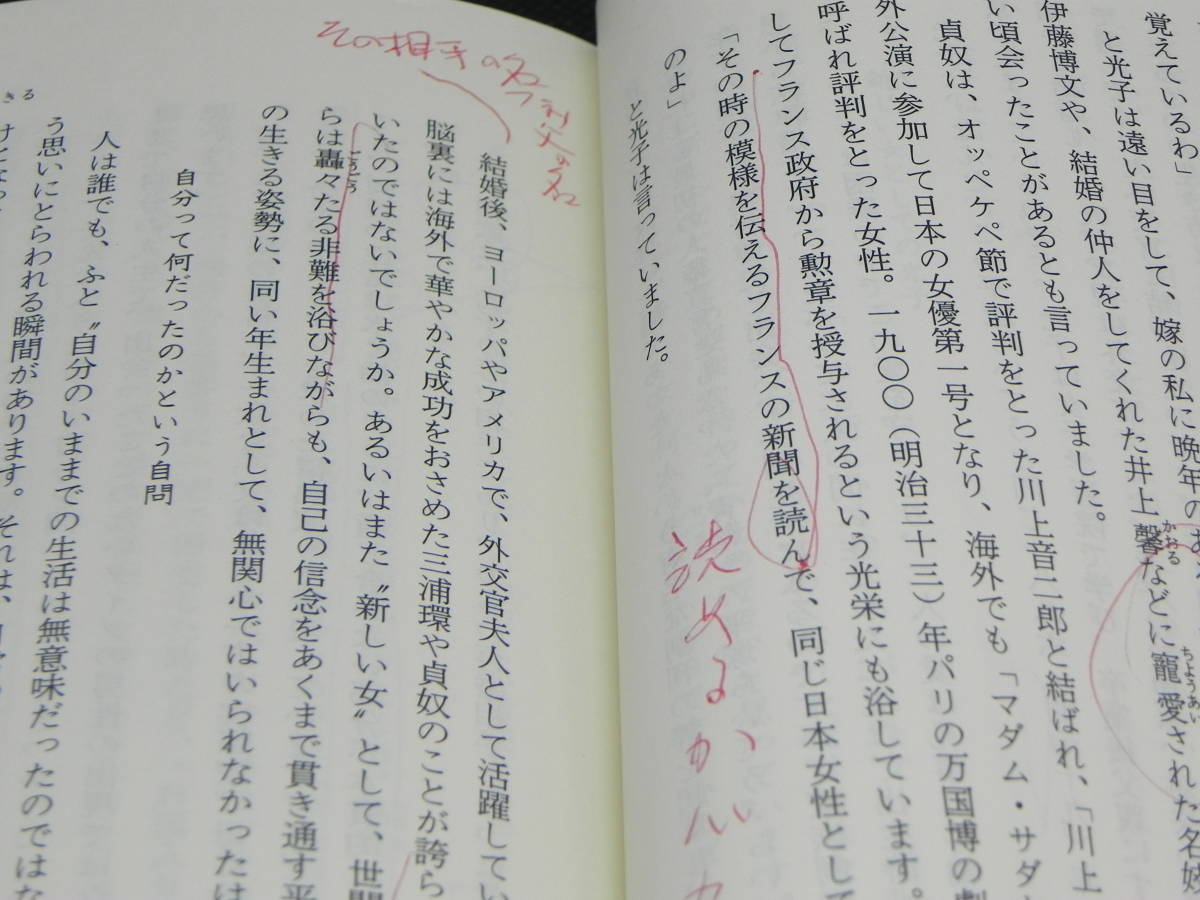 覚えているわ」
と光子は遠い目をして、嫁の私に晩年の
伊藤博文や、結婚の仲人をしてくれた井上馨などに寵愛された名妓
かおる
ちょうあい
い頃会ったことがあるとも言っていました。
貞奴は、オッペケペ節で評判をとった川上音二郎と結ばれ、「川上
外公演に参加して日本の女優第一号となり、海外でも「マダム・サダ
呼ばれ評判をとった女性。一九〇〇（明治三十三）年パリの万国博の劇
してフランス政府から勲章を授与されるという光栄にも浴しています。
「その時の模様を伝えるフランスの新聞を読んで、同じ日本女性として
のよ」
と光子は言っていました。
読めるか
その相手の名
結婚後、ヨーロッパやアメリカで、外交官夫人として活躍してい
脳裏には海外で華やかな成功をおさめた三浦環や貞奴のことが誇ら
いたのではないでしょうか。あるいはまた〝新しい女〟として、世間
らは轟々たる非難を浴びながらも、自己の信念をあくまで貫き通す平
ごうごう
の生きる姿勢に、同い年生まれとして、無関心ではいられなかったは
自分って何だったのかという自問
人は誰でも、ふと〝自分のいままでの生活は無意味だったのではな
う思いにとらわれる瞬間があります。それは、
きる